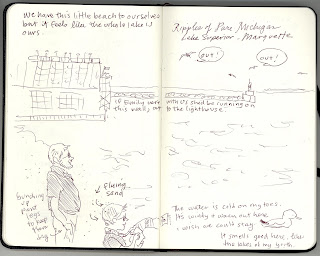 We have this little beach to ourselves
but it feels like the whole lake is
ours.
Ripples of Pure Michigan
Lake Superior - Marquette
out!
out!
If Emily were with us she'd be running on
this wall, out to the lighthouse.
bunching
up
pant
legs
to keep
them
dry
Flying
sand
The water is cold on my toes.
It's windy & warm out here.
I wish we could stay.
It smells good here, like
the lakes of my youth